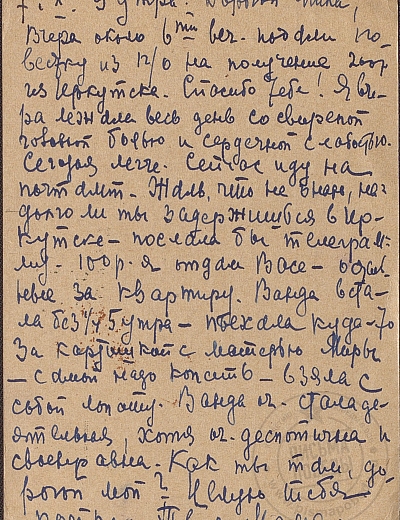 7/IX. 9 утра. Дорогой мой,
Вчера около 6ти веч. подали по-
вестку из п/о на получение 200р
из Иркутска. Спасибо тебе! Я вче-
ра лежала весь день со свирепой
головной болью и сердечной слабостью.
Сегодня легче. Сейчас иду на
почтамт. Жаль, что не знаю, на-
долго ли ты задержишься в Ир-
кутске — послала бы телеграм-
му. 100р. я отдала Васе —
за квартиру. Ванда вста-
ла без 1/4 5 утра — поехала куда-то
за картошкой с матерью Миры
— самой надо копать — взяла с
собой лопату. Ванда оч. стала де-
ятельная, хотя оч. деспотична и
своенравна. Как ты там, до-
рогой мой? Целую тебя